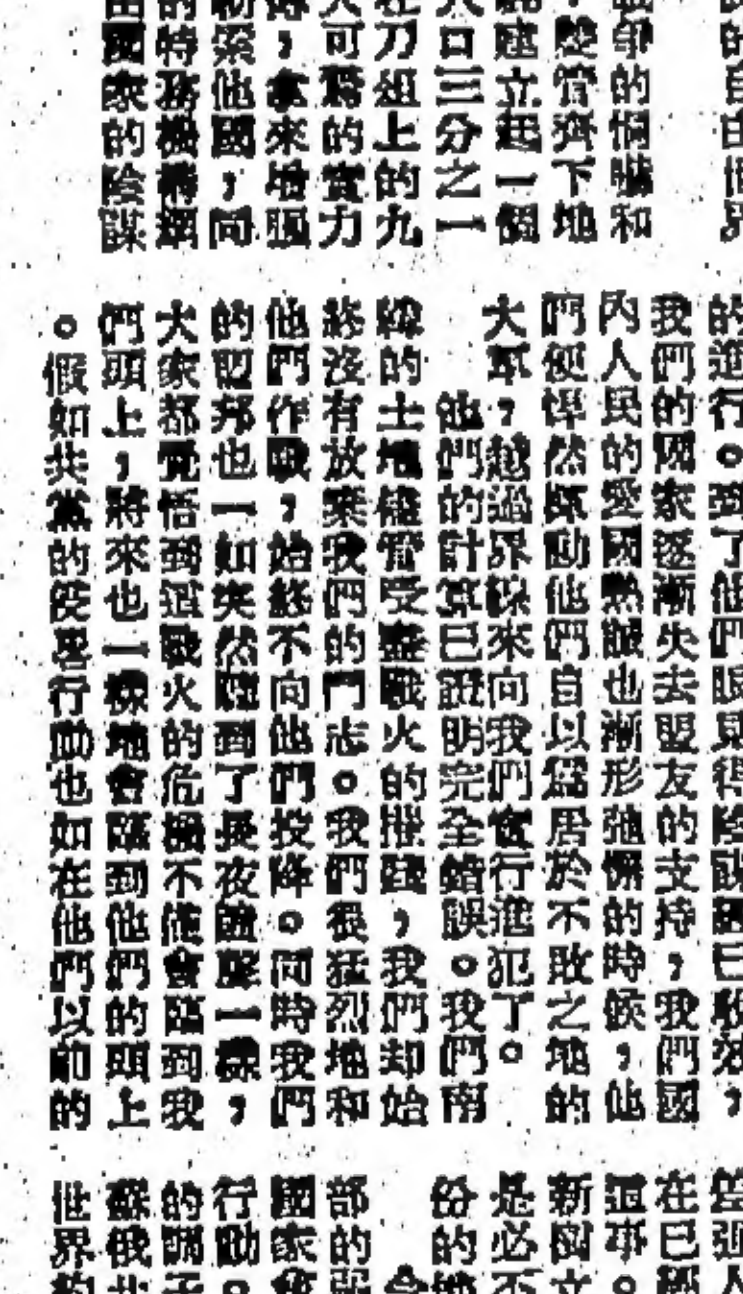 的自由世界
爭的恫嚇和
，雙管齊下地
建立起一個
人口三分之一
在刀俎上的九
大可驚的實力
，拿來增强
勒索他國，同
的特務機構網
由國家的陰謀
的進行。到了他們眼見得陰謀已收效，
我們的國家逐漸失去盟友的支持，我們國
內人民的愛國熱誠也漸形弛懈的時候，他
們便悍然煽動他們自以爲居於不敗之地的
大軍，越過界線來向我們實行進犯了。
他們的計算已證明完全錯誤。我們南
韓的土地儘管受盡戰火的摧殘，我們却始
終沒有放棄我們的鬥志。我們很猛烈地和
他們作戰，始終不向他們投降。同時我們
的盟邦也一如突然聽到了長夜警聲一樣，
大家都覺悟到這戰火的危機不僅會臨到我
們頭上，將來也一樣地會臨到他們的頭上
。假如共黨的侵畧行動也如在他們以前的
在已
這事。
新樹立
是必不
份的地
部的
國家
行動。
的調子
蘇俄北
世界的